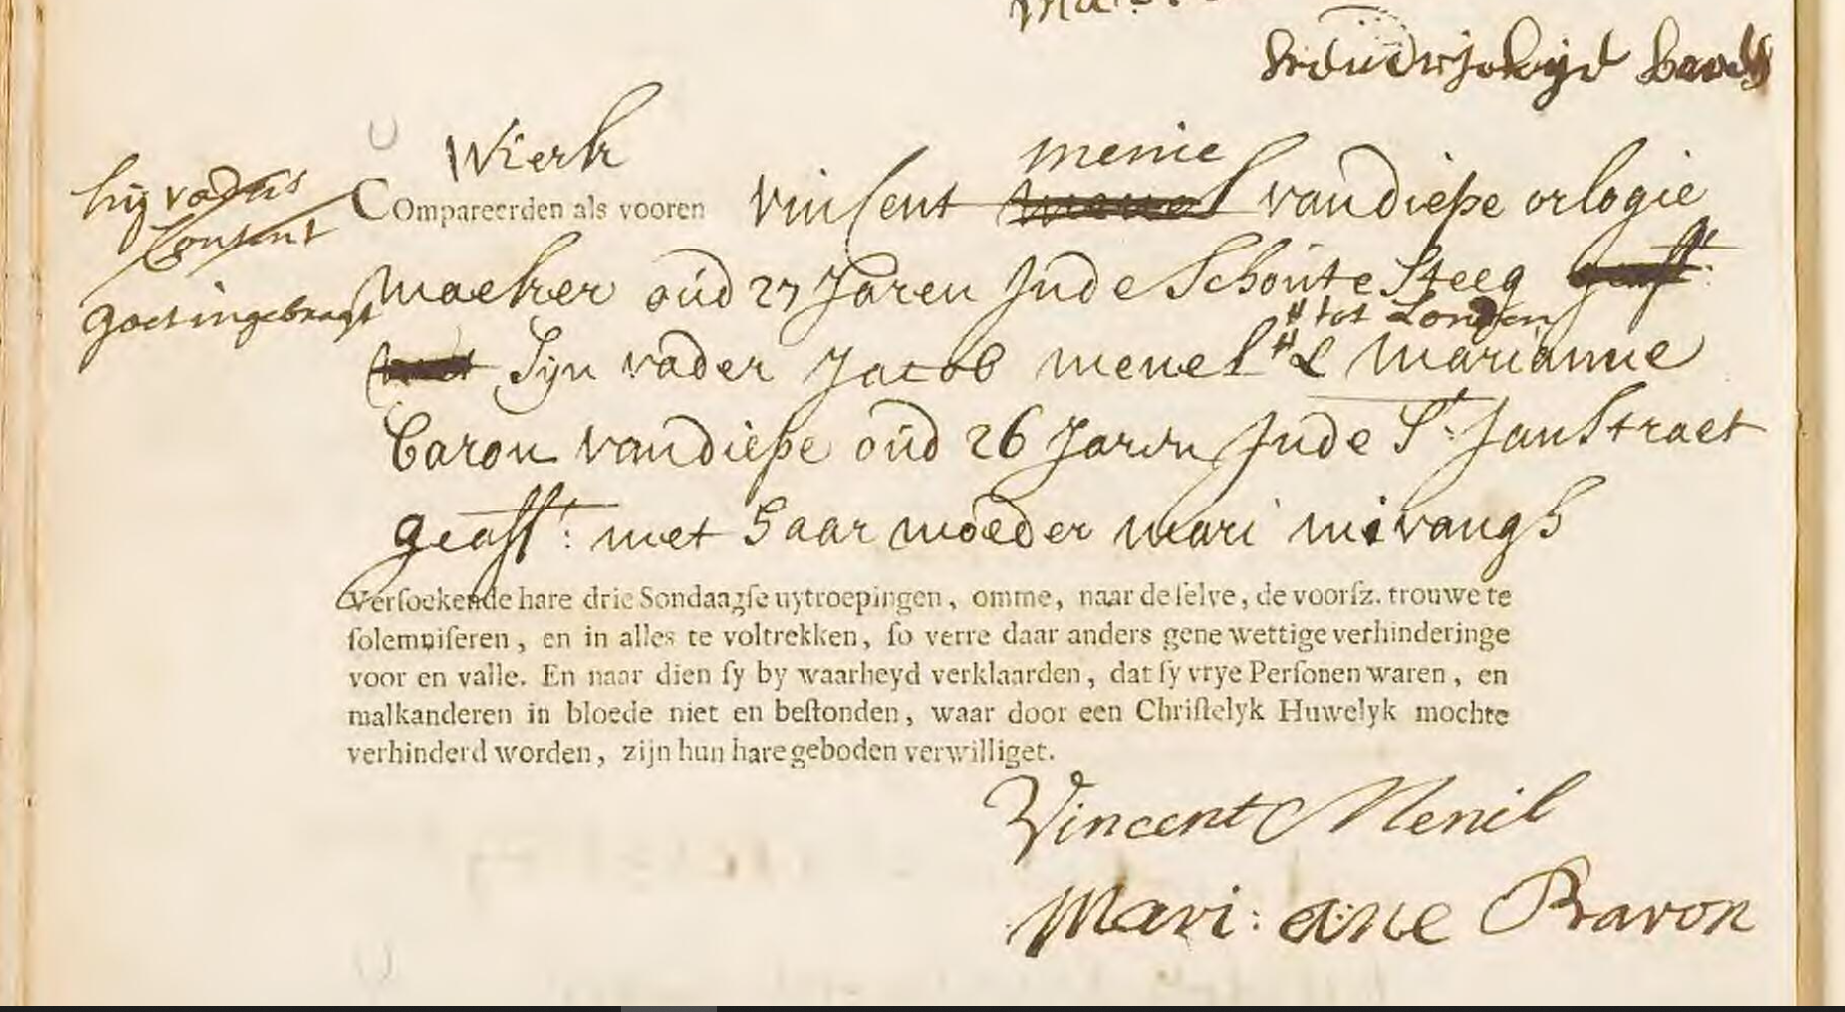 Kerk
hij vaders
Consent
goet ingebragt
COmpareerden als vooren vinsent menel menie van diepe orlogie
maeker oud 27 Jaren Inde Schoute Steeg geass.t
met Sijn vader Jacob menel # # tot Londen & marianne
Caron van diepe oud 26 Jaren Inde S.t Jan Straet
geass.t: met haar moeder mari mivangh
Versoekende hare drie Sondaagse uytroepingen, omme, naar de selve, de voorsz. trouwe te
solemniseren, en in alles te voltrekken, so verre daar anders gene wettige verhinderinge
voor en valle. En naar dien sy by waarheyd verklaarden, dat sy vrye Personen waren, en
malkanderen in bloede niet en bestonden, waar door een Christelyk Huwelyk mochte
verhinderd worden, zijn hun hare geboden verwilliget.
Vincent Menil
Mari: ane Caron